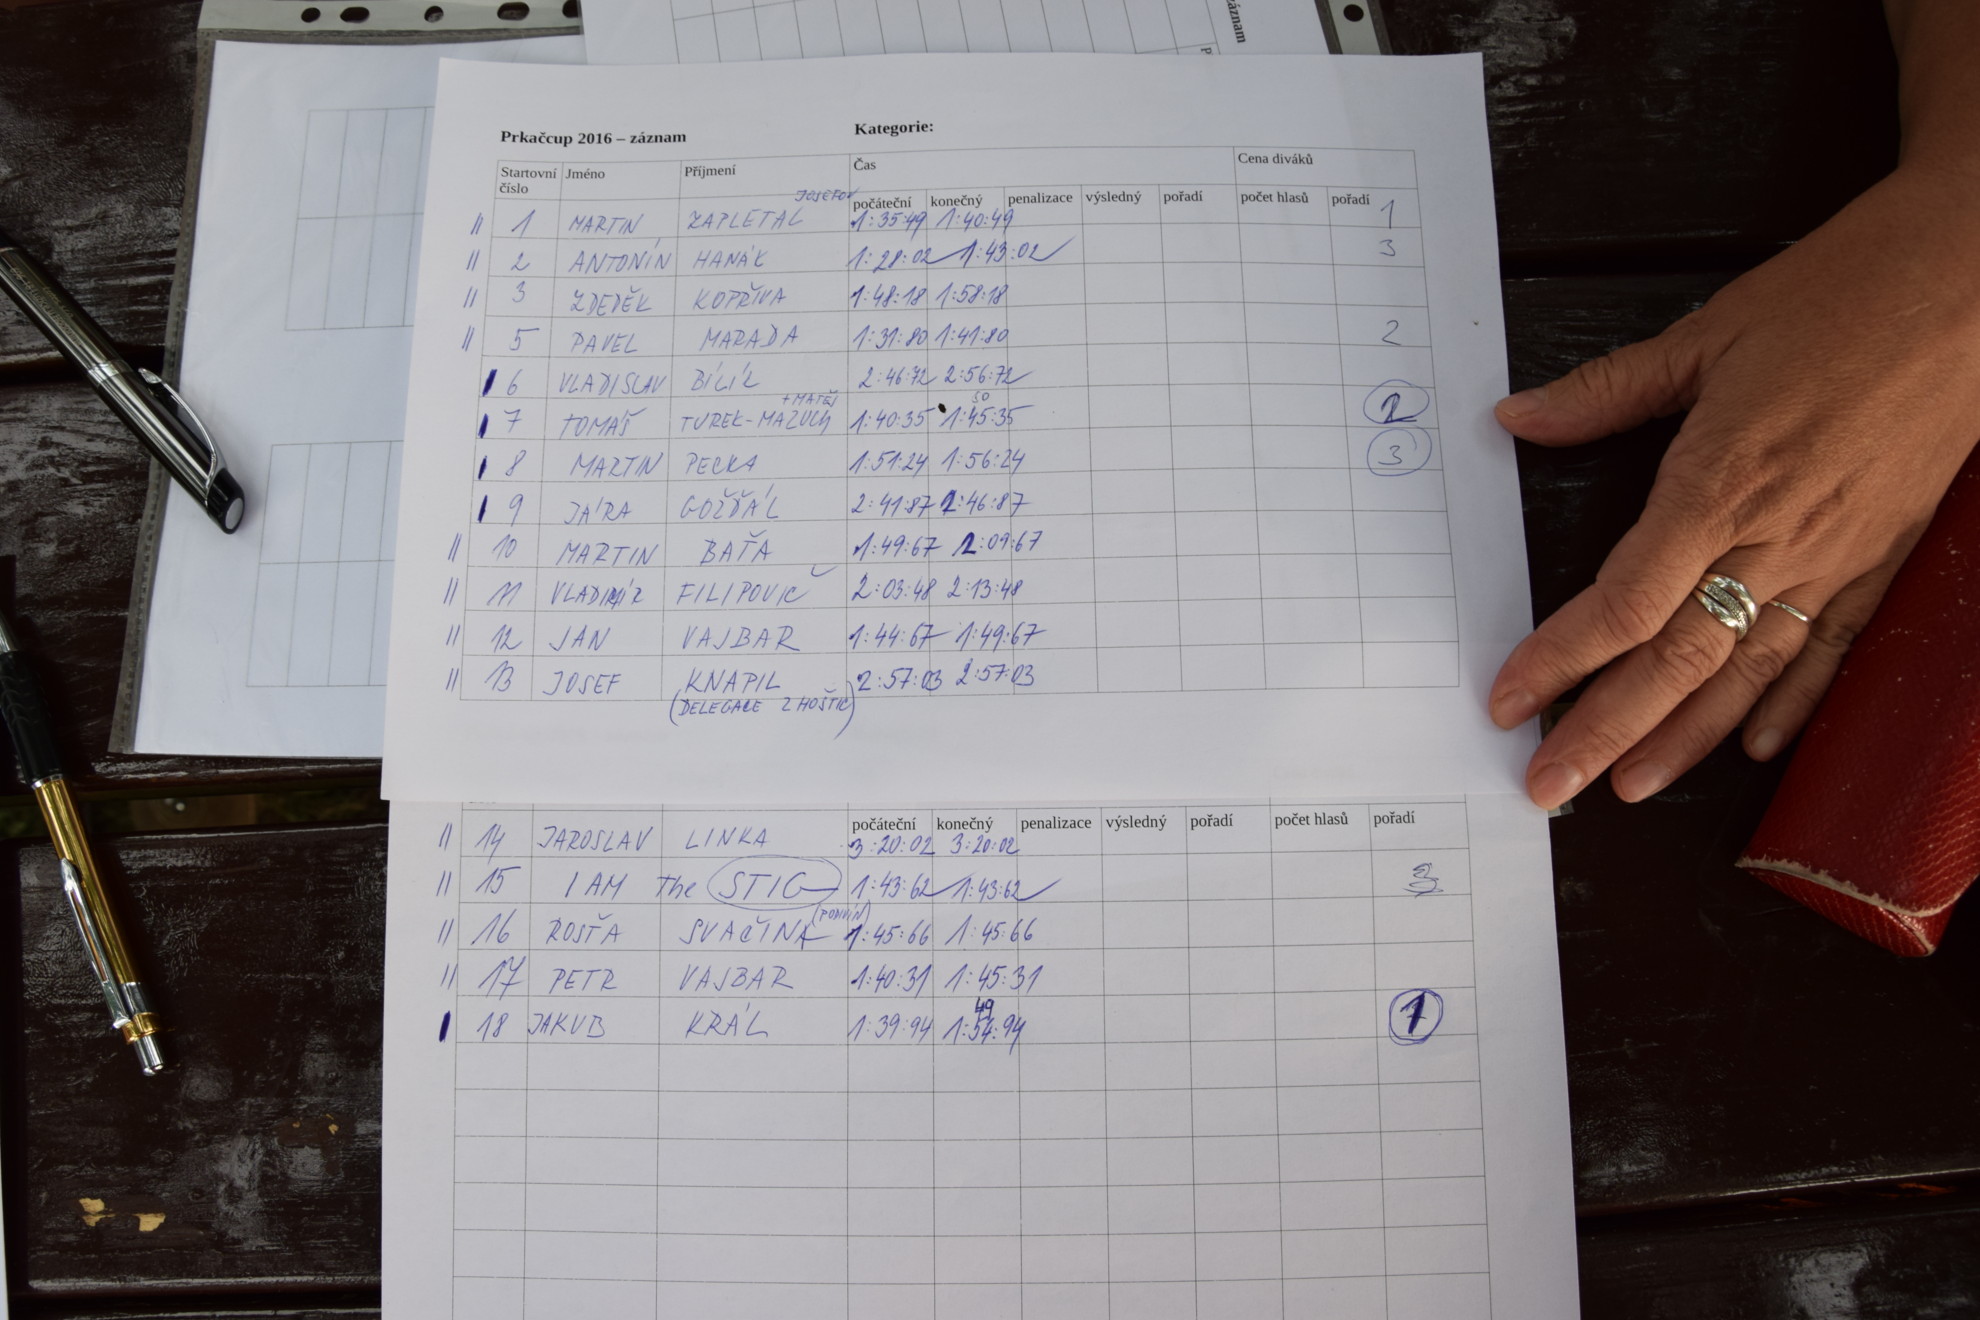 záznam
Prkačcup 2016 – záznam Kategorie:
Startovní číslo Jméno Příjmení Čas Cena diváků
počáteční konečný penalizace výsledný pořadí počet hlasů pořadí
JOSEFOV
11 1 MARTIN ZAPLETAL 1:35:49 1:40:49 1
11 2 ANTONÍN HANÁK 1:28:02 1:43:02 3
11 3 ZDEDĚK KOPŘIVA 1:48:18 1:58:18
11 5 PAVEL MARADA 1:31:80 1:41:80 2
1 6 VLADISLAV BÍLÍK 2:46:72 2:56:72
+MATĚJ 50
1 7 TOMÁŠ TUREK-MAZUCH 1:40:35 1:45:35 2
1 8 MARTIN PECKA 1:51:24 1:56:24 3
1 9 JÁRA GOŽĎÁL 2:41:87 2:46:87
11 10 MARTIN BAŤA 1:49:67 2:09:67
11 11 VLADIMÍR FILIPOVIČ 2:03:48 2:13:48
11 12 JAN VAJBAR 1:44:67 1:49:67
11 13 JOSEF KNAPIL 2:57:03 2:57:03
(DELEGACE Z HOŠTIC)
počáteční konečný penalizace výsledný pořadí počet hlasů pořadí
11 14 JAROSLAV LINKA 3:20:02 3:20:02
11 15 I AM The STIG 1:43:62 1:43:62 3
(PODIVÍN)
11 16 ROSŤA SVAČINA 1:45:66 1:45:66
11 17 PETR VAJBAR 1:40:31 1:45:31
49
1 18 JAKUB KRÁL 1:39:94 1:54:94 1